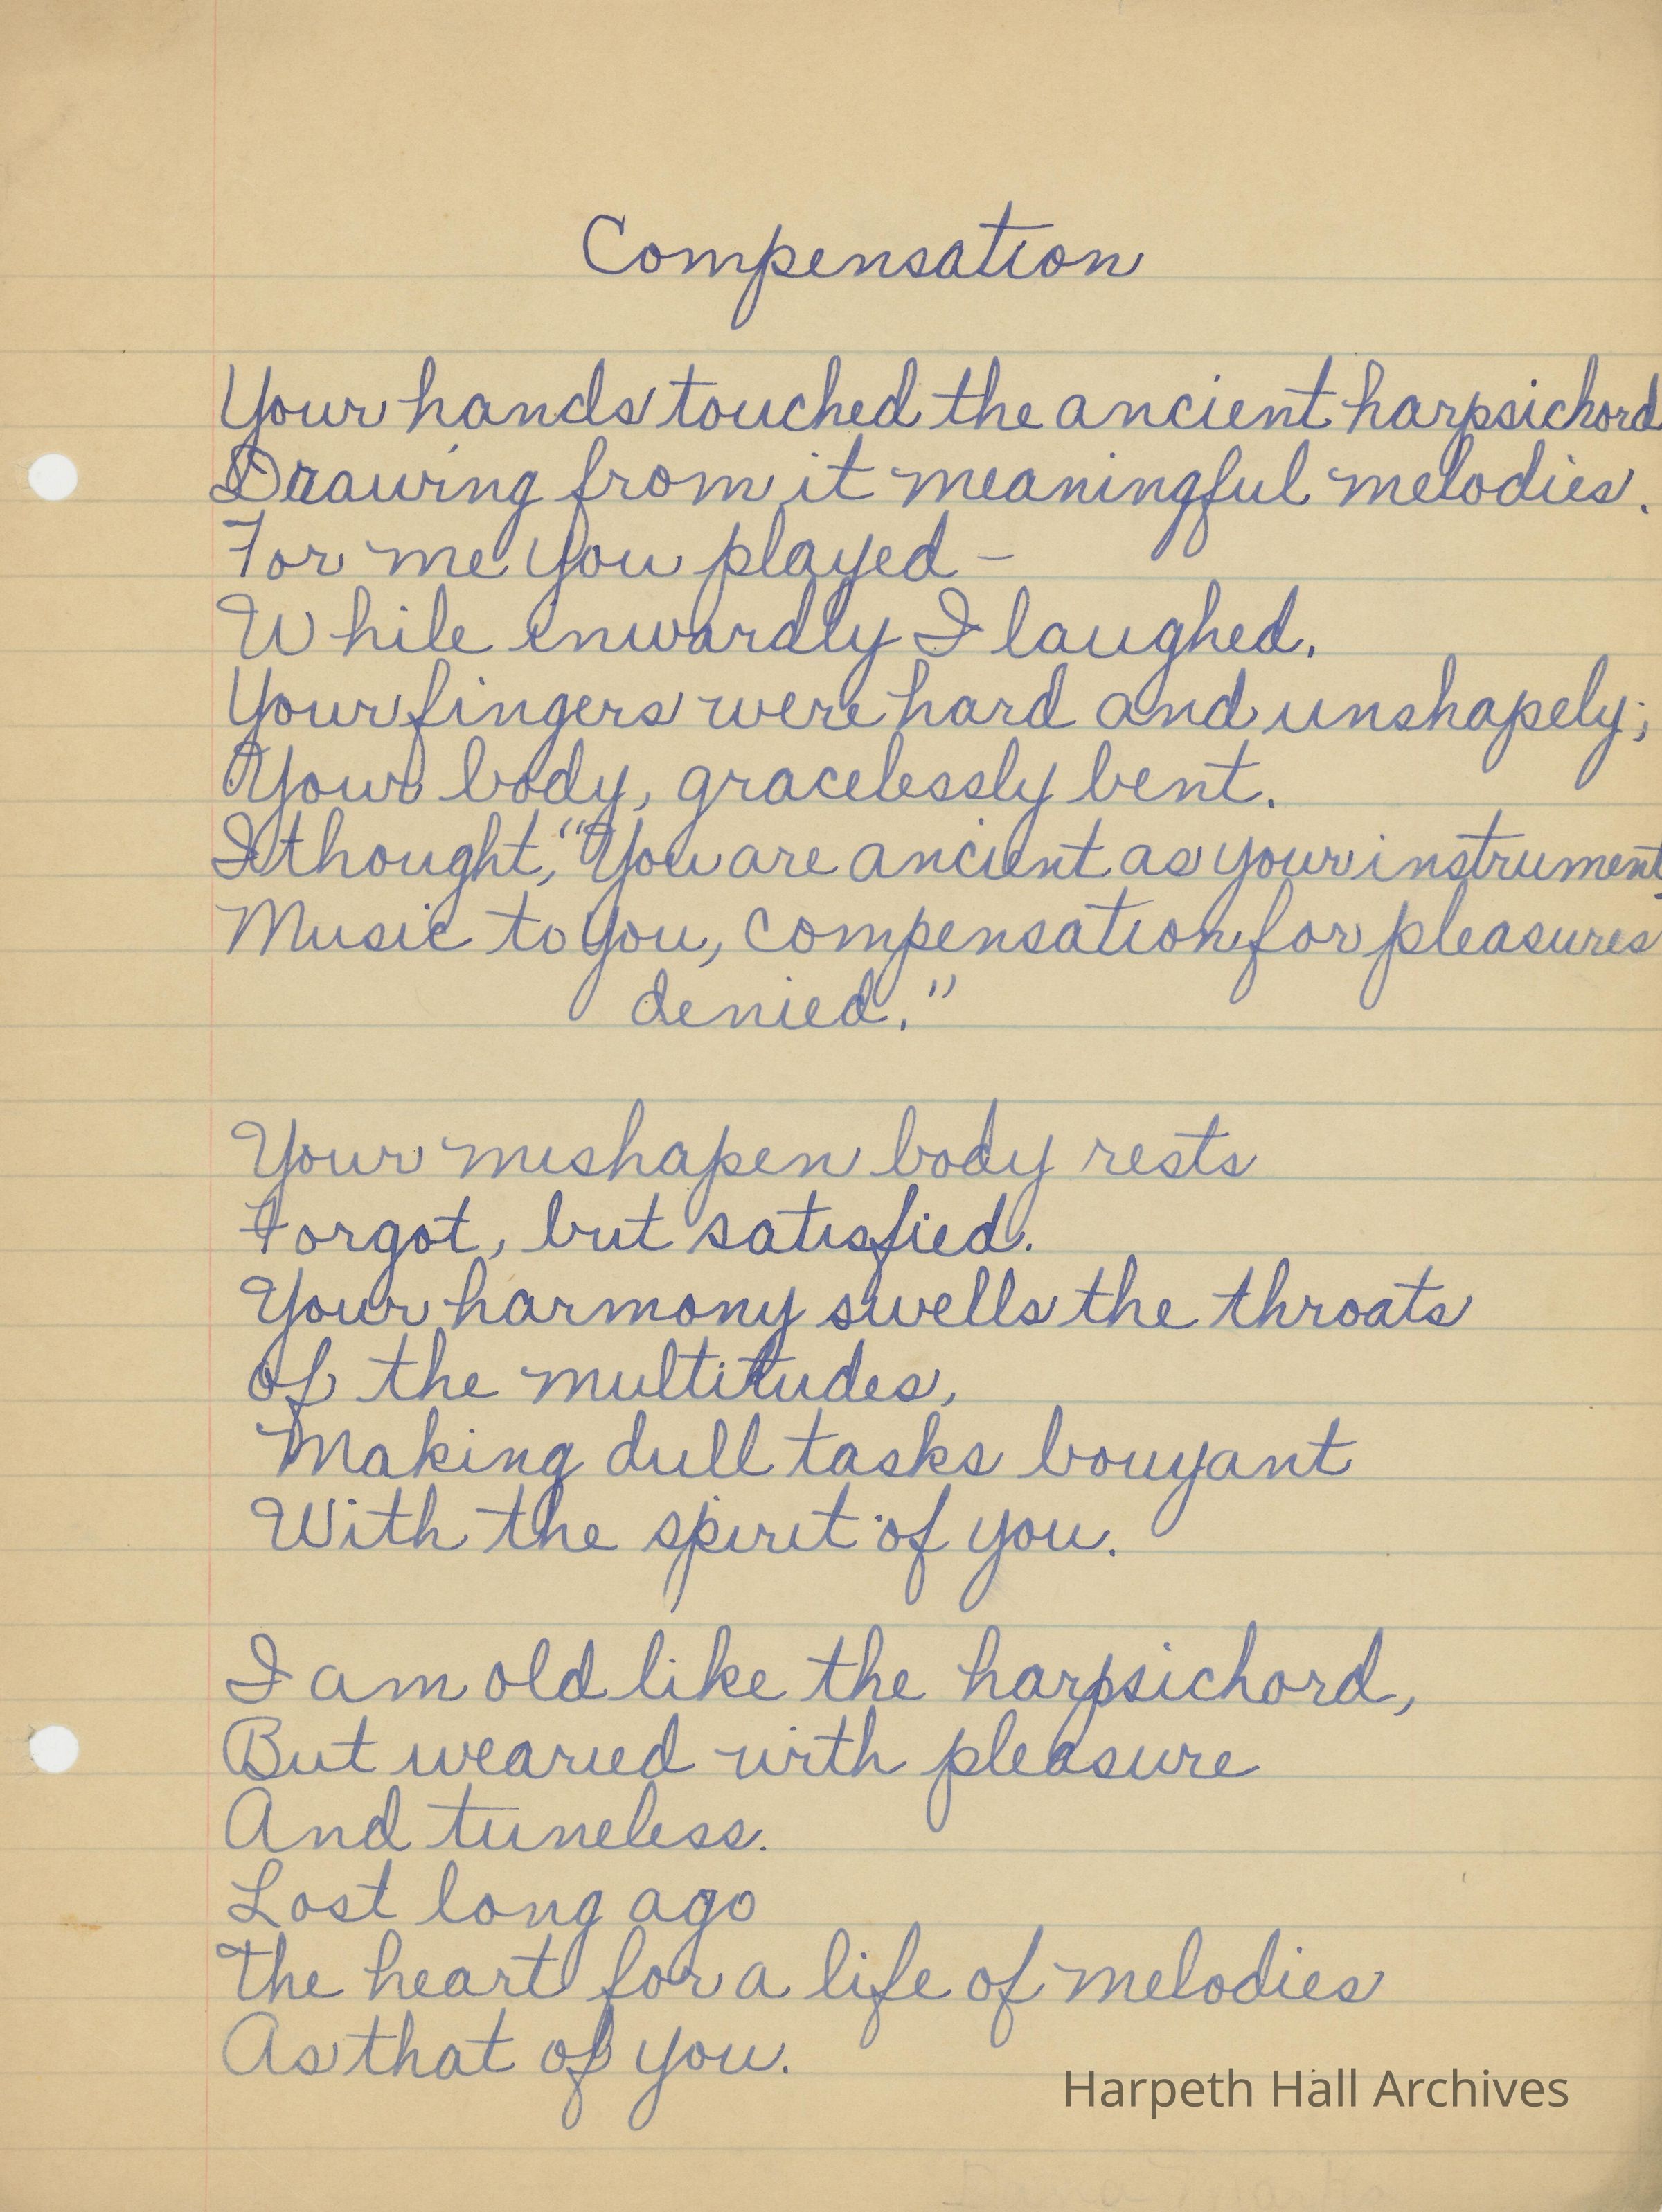 Compensation
Your hands touched the ancient harpsichord
Drawing from it meaningful melodies.
For me you played –
While inwardly I laughed.
Your fingers were hard and unshapely;
Your body, gracelessly bent.
I thought, "You are ancient as your instrument,
Music to you, compensation for pleasures
denied."
Your mishapen body rests
Forgot, but satisfied.
Your harmony swells the throats
of the multitudes,
Making dull tasks bouyant
With the spirit of you.
I am old like the harpsichord,
But wearied with pleasure
And tuneless.
Lost long ago
The heart for a life of melodies
As that of you.
Harpeth Hall Archives